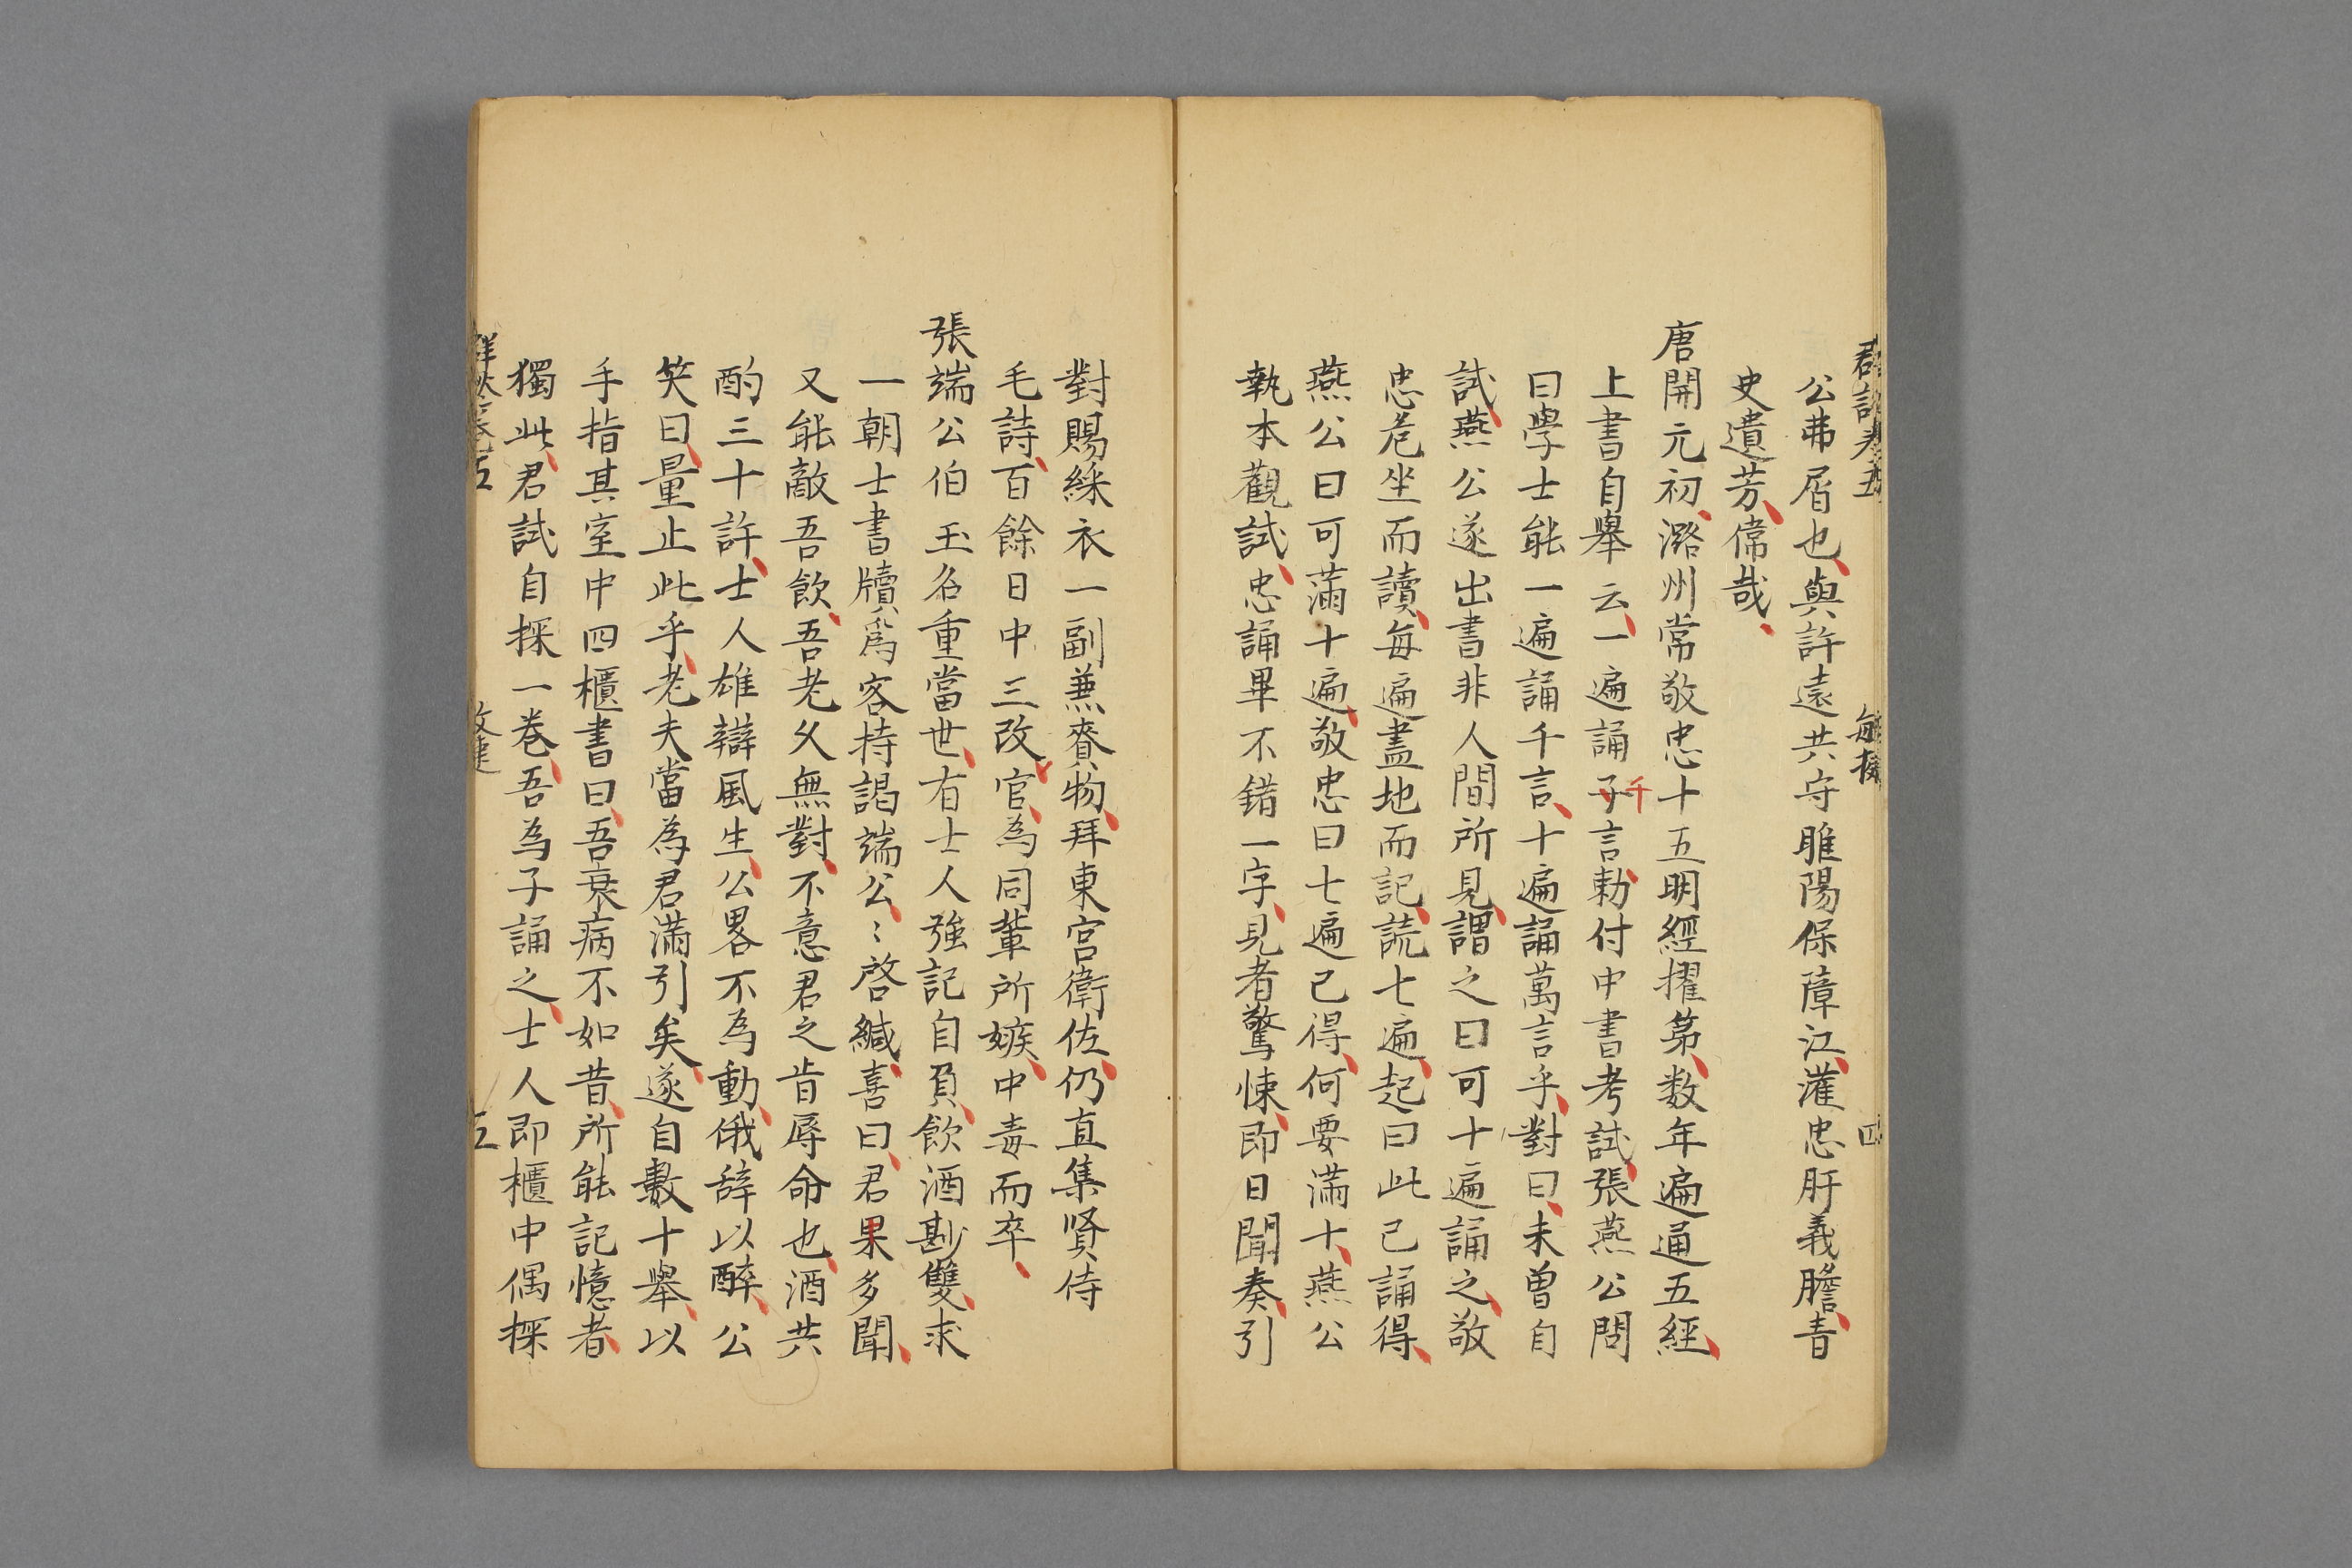 公弗屑也與許遠共守睢陽保障江灌忠肝義膽青
史遺芳偉哉
唐開元初潞州常敬忠十五明經擢第数年遍通五經
上書自舉云一遍誦子千言勅付中書考試張燕公問
曰學士能一遍誦千言十遍誦萬言乎對曰未曾自
試燕公遂出書非人間所見謂之曰可十遍誦之敬
忠危坐而讀每遍畫地而記読七遍起曰此已誦得
燕公曰可滿十遍敬忠曰七遍已得何要滿十燕公
執本觀試忠誦畢不錯一字見者驚悚即日聞奏引
對賜綵衣一副兼賚物拜東宮衛佐仍直集賢侍
毛詩百餘日中三改官為同輩所嫉中毒而卒
張端公伯玉名重當世有士人強記自負飲酒尠雙求
一朝士書牘爲客持謁端公〻啓緘喜曰君果多聞
又能敵吾飲吾老久無對不意君之肯辱命也酒共
酌三十許士人雄辯風生公畧不為動俄辞以醉公
笑曰量止此乎老夫當為君滿引矣遂自數十舉以
手指其室中四櫃書曰吾衰病不如昔所能記憶者
獨此君試自探一卷吾為子誦之士人即櫃中偶探